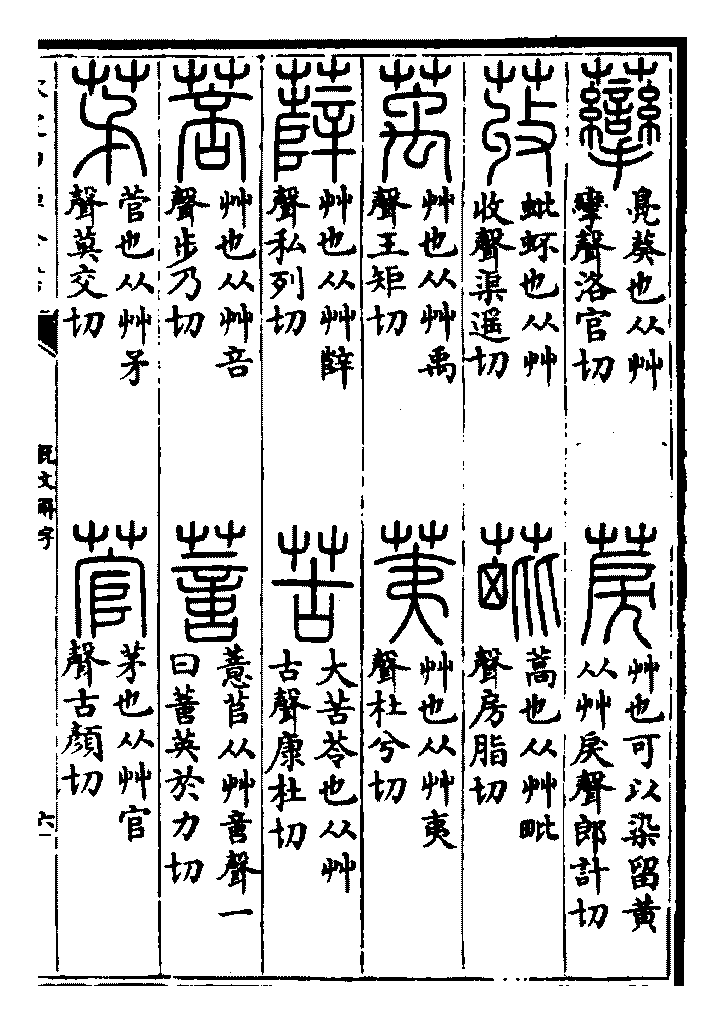 鳧葵也从艸
攣聲洛官切
䓞
艸也可以染留黃
从艸戾聲郎計切
荍
蚍虾也从艸
收聲渠遥切
蒿也从艸毗
聲房脂切
萭
艸也从艸禹
聲王矩切
荑
艸也从艸夷
聲杜兮切
薛
艸也从艸辥
聲私列切
苦
大苦苓也从艸
古聲康杜切
菩
艸也从艸咅
聲步乃切
薏苢从艸𠶷聲一
曰英於力切
茅
菅也从艸矛
聲莫交切
菅
茅也从艸官
聲古顏切
說文解字
六